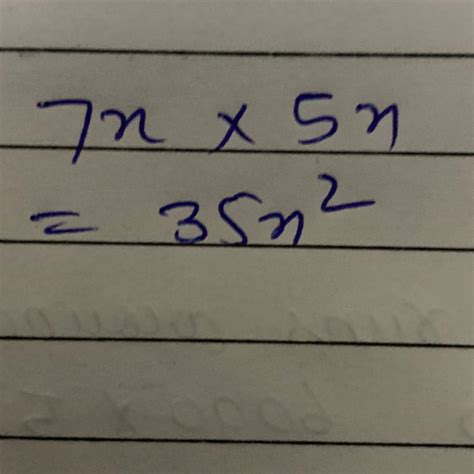 7x × 5x
= 35x²